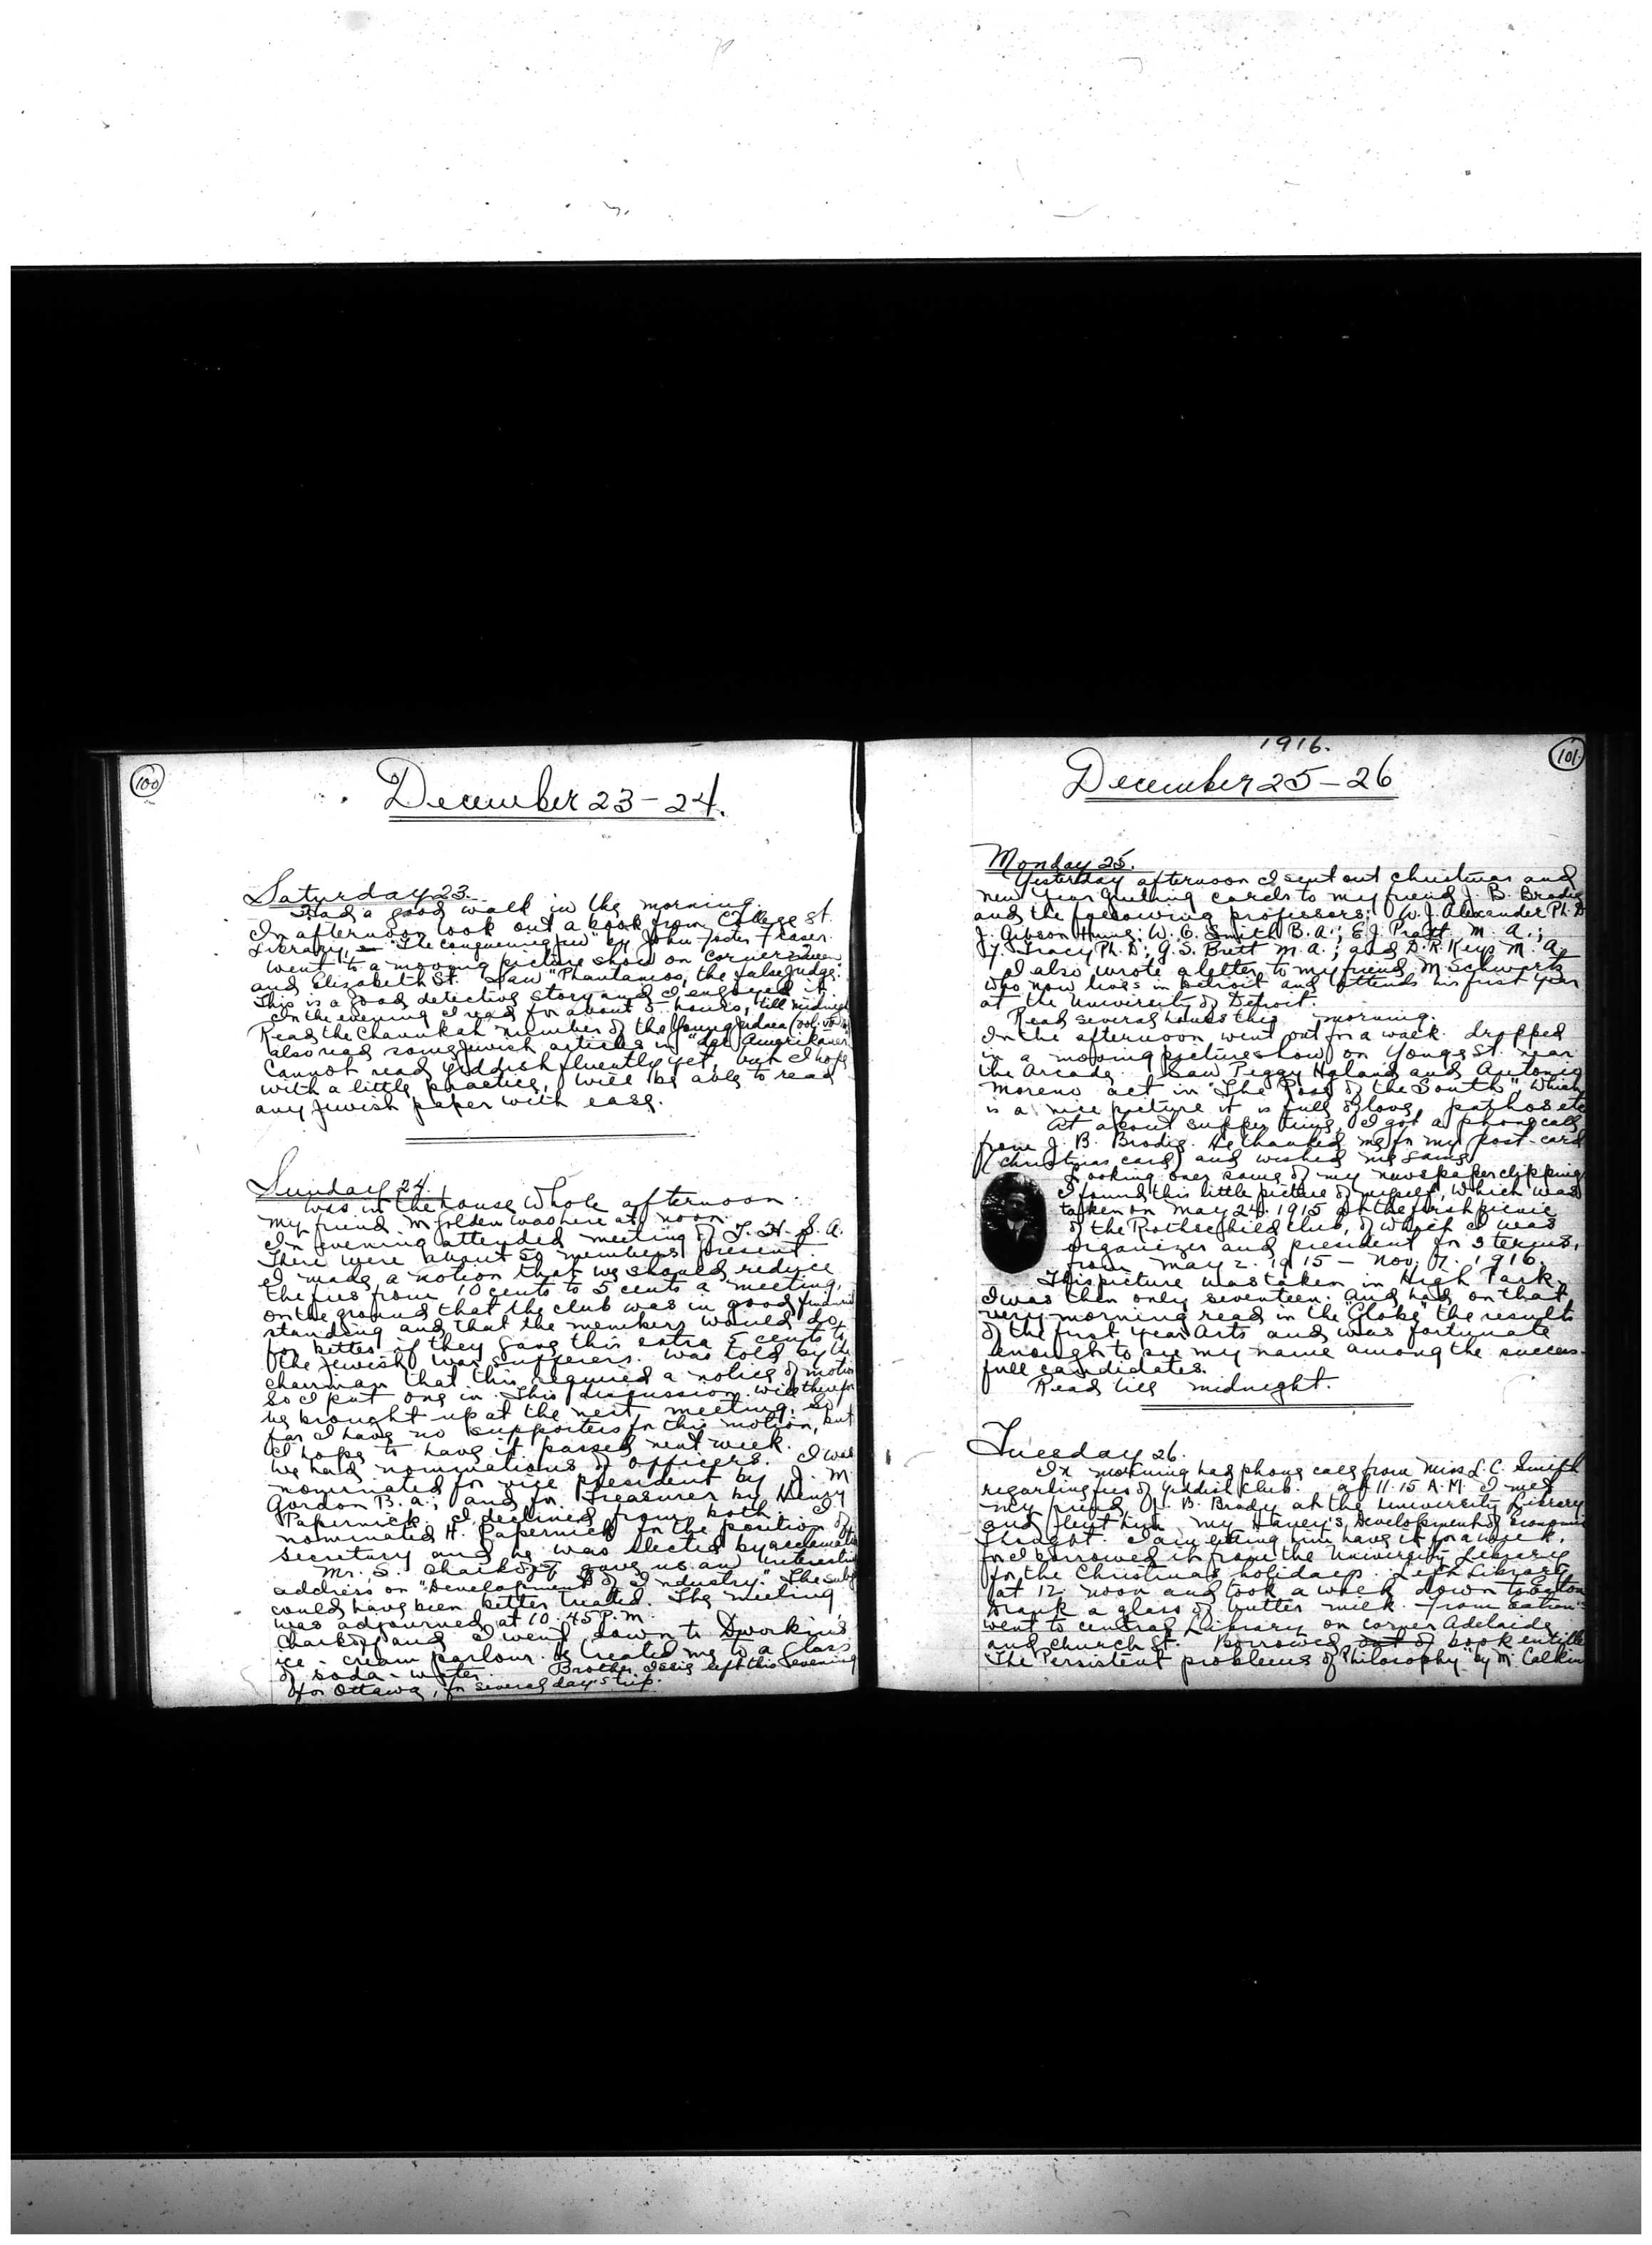 100
December 23-24.
Saturday 23.
Had a good walk in the morning.
In afternoon took out a book from College St.
Library, "The conquering Jew" by John Foster Fraser.
went to a moving picture show on corner Queen
and Elizabeth St. Saw "Phantamos, the false Judge."
This is a good detective story and I enjoyed it.
In the evening I read for about 5 hours, till midnight
Read the Chanukah number of the Young Judaea
also read some Jewish articles in "Der Amerikaner"
Cannot read Yiddish fluently yet, but I hope
with a little practice, will be able to read
any Jewish paper with ease.
Sunday 24.
Was in the house whole afternoon.
My friend M Golden was here at noon.
In evening attended meeting of J. H. S. A.
There were about 50 members present.
I made a motion that we should reduce
the fees from 10 cents to 5 cents a meeting,
on the ground that the club was in good financial
standing and that the members would do
far better if they gave this extra 5 cents to
the Jewish war sufferers. Was told by the
chairman that this required a notice of motion
So I put one in. This discussion will therefore
be brought up at the next meeting. So
far I have no supporters for this motion, but
I hope to have it passed next week.
We had nominations of officers. I was
nominated for vice president by J. M.
Gordon B.A.; and for Treasurer by Henry
Papernick. I declined from both. I
nominated H. Papernick for the position of
secretary and he was elected by acclamation
Mr. S. gave us an interesting
address on "Development of Industry." The subj
could have been better treated. The meeting
was adjourned at 10.45 P.m.
and I went down to Dworkin's
ice-cream parlour. He treated me to a glass
of soda-water. Brother Issie left this evening
for Ottawa, for several day's trip.
1916.
101
December 25-26
Monday 25.
Yesterday afternoon I sent out christmas and
new Year Greeting cards to my friend J. B. Brodie
and the following professors: W. J. Alexander Ph.D
J. Gibson Hume; W. G. Smith B.A.; E.J. Pratt M.A.;
F. Tracy Ph.D; G.S. Brett M.A.; and D.R. Keys M.A.
I also wrote a letter to my friend M. Schwartz
who now lives in Detroit and attends his first year
at the University of Detroit.
Read several hours this morning.
In the afternoon went out for a walk. dropped
in a moving picture show on Yonge St. near
the Arcade. Saw Peggy Hyland and Antonio
Moreno act in "The Rose of the South", which
is a nice picture it is full of love, pathos etc
At about supper time, I got a phone call
from J. B. Brodie. He thanked me for my post-card
(christmas card) and wished me same.
Looking over some of my newspaper clippings
I found this little picture of myself, which was
taken on May 24. 1915 at the first picnic
of the Rothschild club, of which I was
organizer and president for 3 terms,
from May 2. 1915 - Nov. 7. 1916.
This picture was taken in High Park.
I was then only seventeen. And had on that
very morning read in the "Globe" the results
of the first year Arts and was fortunate
enough to see my name among the success-
full candidates.
Read till midnight.
Tuesday 26.
In morning had phone call from Miss L.C. Smith
regarding fees of Yiddish Club. at 11.15 A.M. I met
my friend J. B. Brody at the University Library
and lent him my Haney's Development of Economic
Thought. I am letting him have it for a week,
for I borrowed it from the University Library
for the Christmas holidays. Left Library
at 12 noon and took a walk down to Eaton
Drank a glass of butter milk. From Eaton's
went to central Library on corner Adelaide
and church St. Borrowed out of book entitle
"The Persistent problems of Philosophy" by M. Calkin